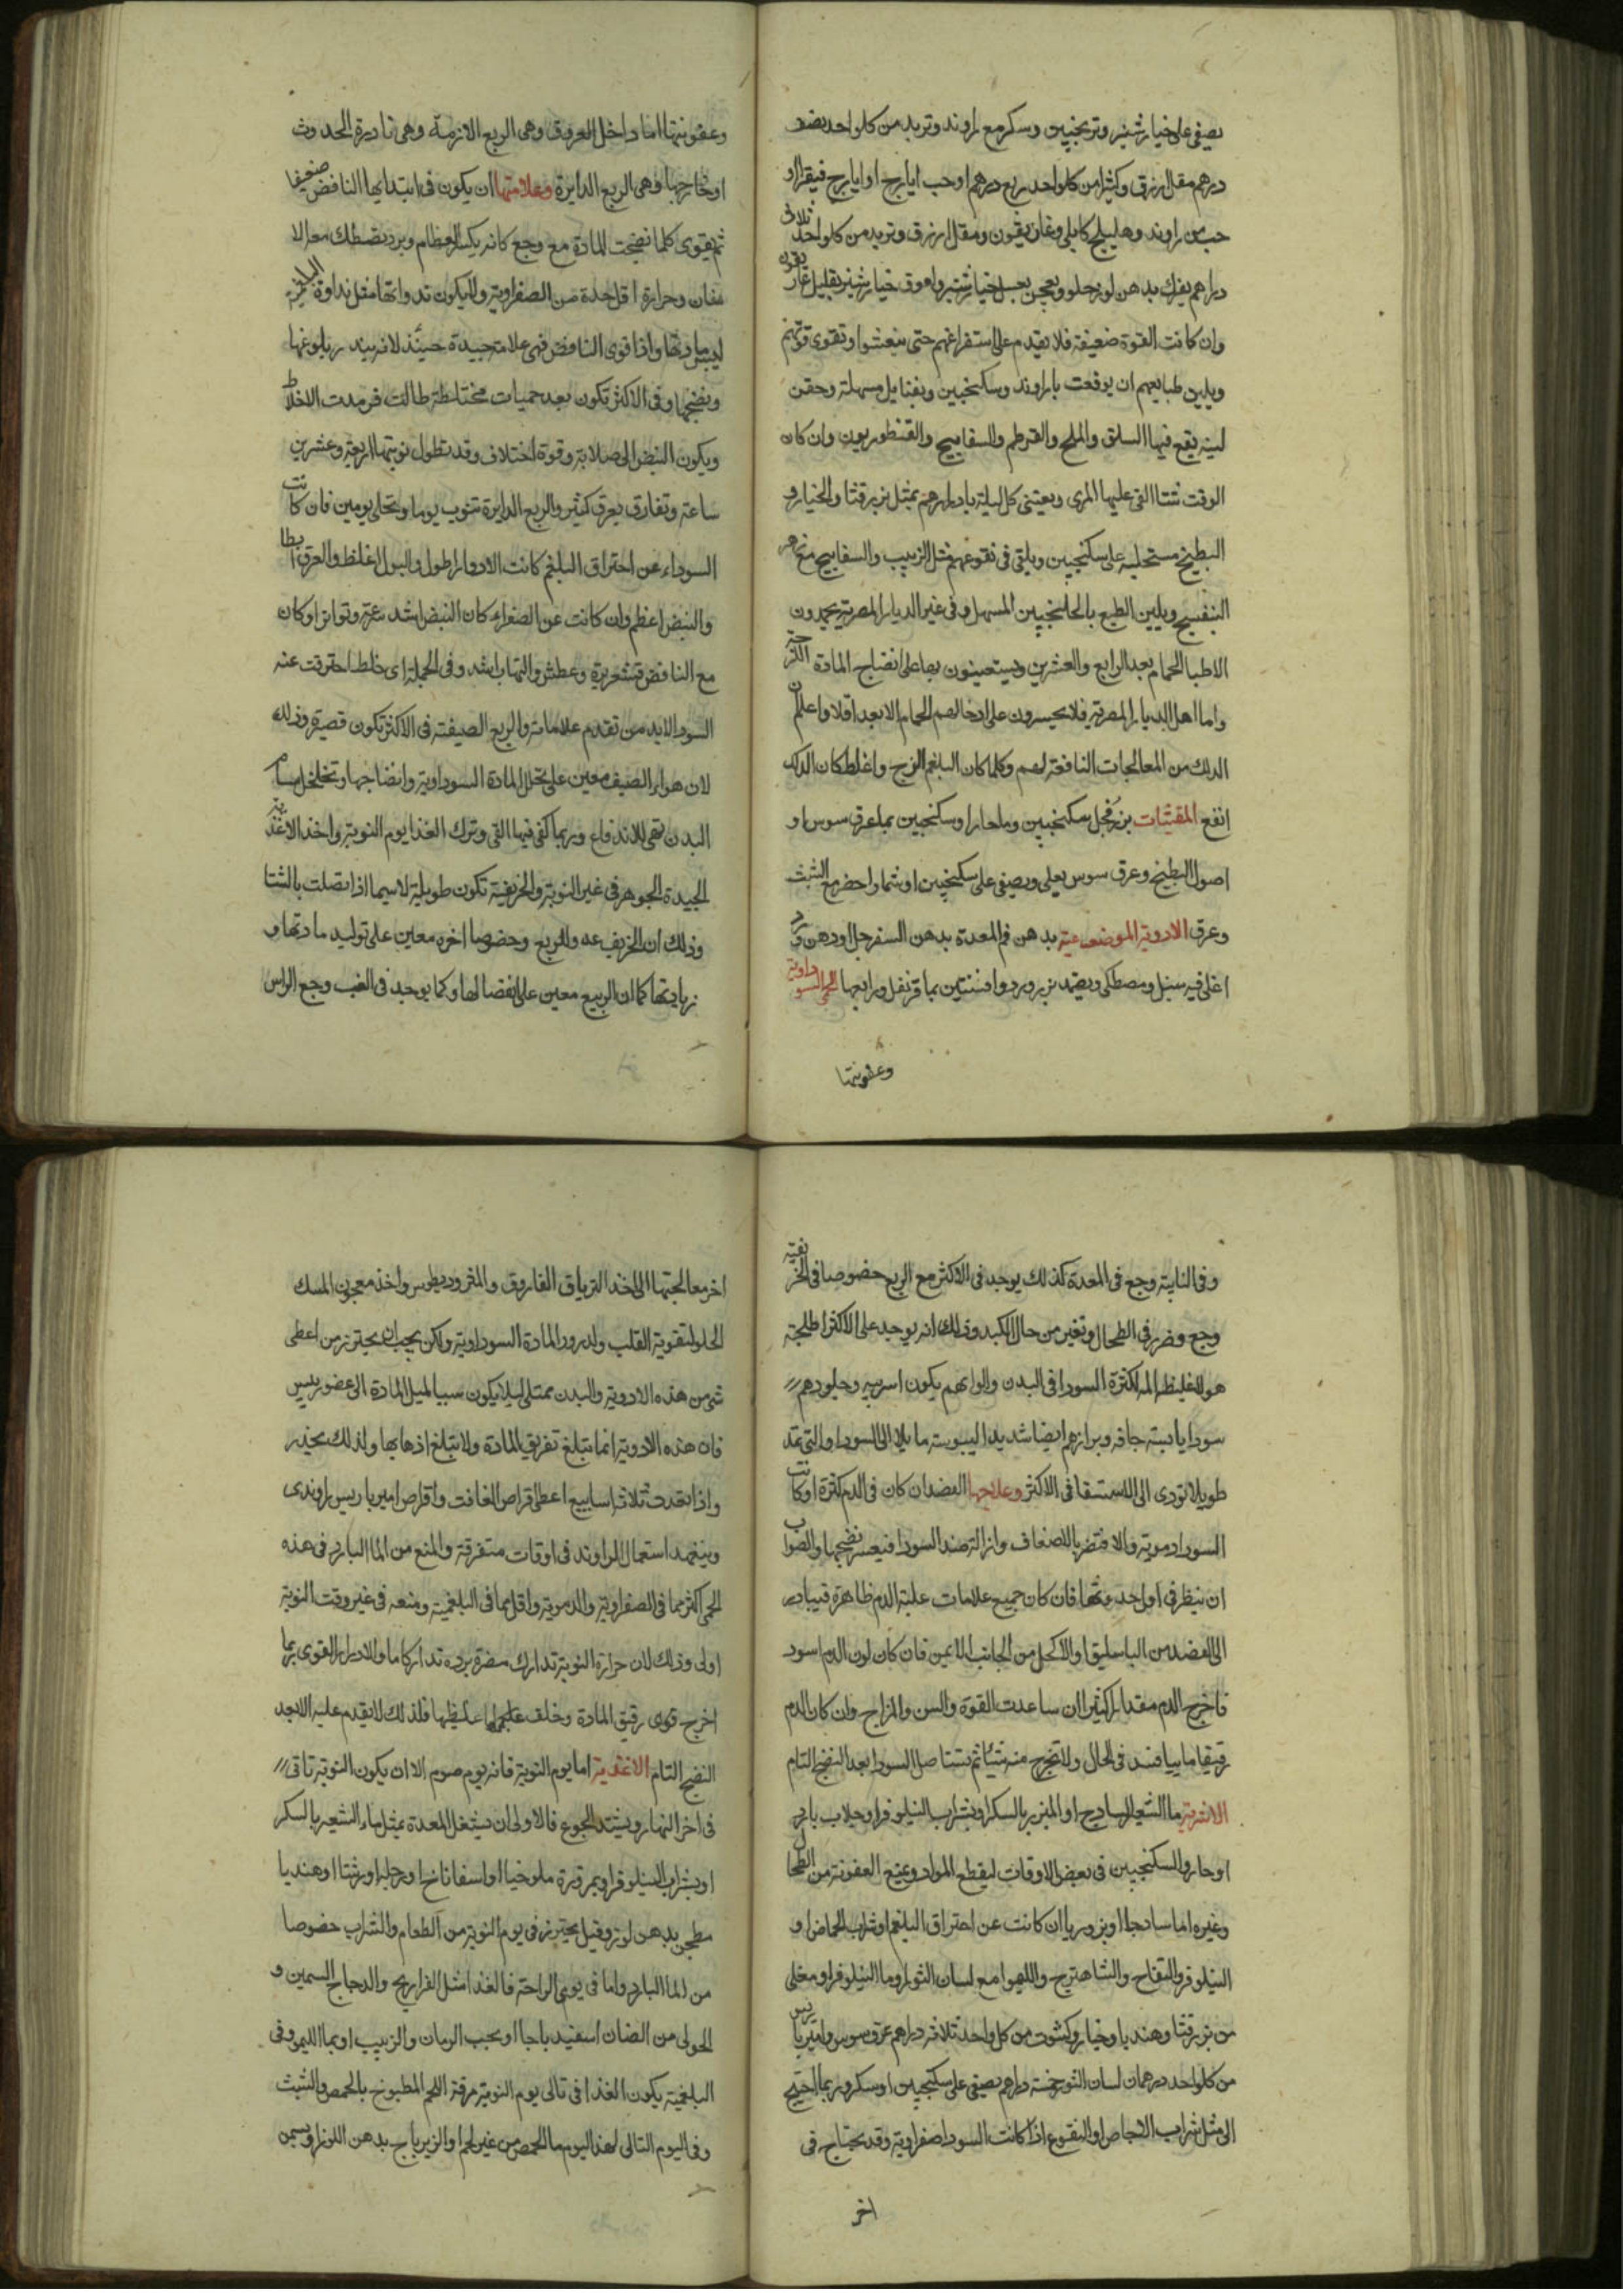 يصفى على خيارشنبر وترنجبين وسكر مع راوند وتربد من كل واحد نصف
درهم مقل ازرق وكثيرا من كل واحد ربع درهم او حب ايارج او ايارج فيقرا او
حب من راوند وهليلج كابلى وغاريقون ومقل ازرق وتربد من كل واحد ثلاثة
دراهم يفرك بدهن لوز حلو ويعجن بعسل خيارشنبر بقليل غاريقون
وان كانت القوة ضعيفة فلا يقدم على استفراغهم حتى ينعشوا وتقوى قوتهم
ويلين طبايعهم ان يوقفت براوند وسكنجبين وبفتايل مسهلة وحقن
لينه يقع فيها السلق والملح والقرطم والسفايج والقنطوريون وان كان
الوقت شتا القى عليها المرى ويعتنى كل ليلة بادرارهم بمثل بزرقثا والخيار و
البطيخ مستحلبه على سكنجبين ويلقى فى نقوعهم مثل الزبيب والسفايج مع زهر
البنفسج ويلين الطبع بالجلنجبين المسهل وفى غير الديار المصرية يحمدون
الاطبا الحمام بعد الرابع والعشرين ويستعينون بها على انضاج المادة اللزجة
واما اهل الديار المصرية فلا يجسرون على ادخالهم الحمام الا بعد اقلا واعلم ان
الدلك من المعالجات النافعة لهم وكلما كان البلغم الزج واغلظ كان الدلك
انفع المقيئات بزر فجل بسكنجبين وما حار او سكنجبين بماء عرق سوس او
اصول البطيخ وعرق سوس يغلى ويصفى على سكنجبين او شمار اخضر مع الشبث
وعرق الادوية الموضعية بدهن فم المعدة بدهن السفرجل او دهن ورد
اغلى فيه سنبل ومصطكى ويضمد بزر ورد وافسنتين بما قرنفل ورابعها الحمى السوداوية
وعفونتها
وعفونتها اما داخل العروق وهى الربع اللازمة وهى نادرة الحدوث
او خارجها وهى الربع الدايرة وعلامتها ان يكون فى ابتدايها النافض ضعيفا
ثم يقوى كلما نضجت المادة مع وجع كانه يكسر العظام وبرد تصطك معه الا
سنان وحرارة اقل حدة من الصفراوية ولا يكون نداوتها مثل نداوة البلغمية
ليبس مادتها واذا قوى النافض فهى علامة جيدة حينئذ لانه يبدر بلوغها
ونضجها وفى الاكثر تكون بعد حميات مختلطة طالت فرمدت الاخلاط
ويكون النبض الى صلابة وقوة اختلاف وقد تطول نوبتها اربعة وعشرين
ساعة وتفارق بعرق كثير والربع الدايرة تنوب يوما وتخلى يومين فان كانت
السوداء عن احتراق البلغم كانت الادوار اطول والبول اغلظ والعرق ابطا
والنبض اعظم وان كانت عن الصفراء كان النبض اشد سرعة وتواترا وكان
مع النافض قشعريرة وعطش والتهاب اشد وفى الجملة اى خلط احترقت عنه
السودا لابد من تقدم علاماته والربع الصيفية فى الاكثر تكون قصيرة وذلك
لان هواء الصيف معين على تحلل المادة السوداوية وانضاجها وتخلخل مسام
البدن تهى للاندفاع وربما كفى فيها القى وترك الغذا يوم النوبة واخذ الاغذية
الجيدة الجوهر فى غير النوبة والخريفية تكون طويلة لاسيما اذا اتصلت بالشتا
وذلك ان الخريف عدو للربع وخصوصا اخره معين على توليد مادتها و
زيادتها كما ان الربيع معين على انفصالها وكما يوجد فى الغب وجع الراس
وفى النايبة وجع فى المعدة كذلك يوجد فى الاكثر مع الربع خصوصا فى الخريفية
وجع وضرر فى الطحال وتغير من حال الكبد وذلك انه يوجد على الاكثر اطلحية
هو للغليظ المر لكثرة السودا فى البدن والوانهم يكون اسربيه وجلودهم
سودا يابسة جافه وبرازهم ايضا شديد اليبوسة مايلا الى السودا والتى تمتد
طويلا تودى الى الاستسقا فى الاكثر وعلاجها الفصد ان كان فى الدم كثرة او كانت
السودا دموية والا فتضر بالاضعاف وازالة ضد السودا فيعسر نضجها والصواب
ان ينظر فى اول حدوثها فان كان جميع علامات غلبة الدم ظاهرة فيبادر
الى الفصد من الباسليق او الاكحل من الجانب الايمن فان كان لون الدم اسود
فاخرج الدم مقدارا كثيرا ان ساعدت القوة والسن والمزاج وان كان الدم
رقيقا ماييا فسد فى الحال ولا تخرج منه شيئا ثم تستاصل السودا بعد النضج التام
الاشربة ما الشعير السادج او المبزر بالسكر او بشراب النيلوفر او جلاب بارد
او حار والسكنجبين فى بعض الاوقات ليقطع المواد ويمنع العفونة من الطحال
وغيره اما سادجا او بزوريا ان كانت عن احتراق البلغم او شراب الحماض او
النيلوفر والتفاح والشاهترج واللهوا مع لسان الثور او ما النيلوفر او مغلى
من بزر قثا وهندبا وخيار وكشوت من كل واحد ثلاثة دراهم عرق سوس وامير باريس
من كل واحد درهمان لسان الثور خمسة دراهم يصفى على سكنجبين او سكر وربما احتيج
الى مثل شراب الاجاص او النقوع اذا كانت السودا صفراوية وقد يحتاج فى
اخر
اخر معالجتها الى اخذ الترياق الفاروق والمثروديطوس واخذ معجون المسك
الحلو لتقوية القلب ولدرور المادة السوداوية ولكن يجب ان يحترز من اعطى
شى من هذه الادوية والبدن ممتلى ليلا يكون سببا لميل المادة الى عضو رييس
فان هذه الادوية انما تبلغ تفريق المادة ولا تبلغ اذهابها ولذلك يحذر
واذا تعدت ثلاثة اسابيع اعطى اقراص الغافت واقراص امير باريس راوندى
ويتعمد استعمال الراوند فى اوقات متفرقة والمنع من الما البارد فى هذه
الحمى اكثر مما فى الصفراوية والدموية واقل مما فى البلغمية ومنعه فى غير وقت النوبة
اولى وذلك لان حرارة النوبة تدارك مضرة برده تداركا ما والادرار القوى ربما
اخرج قوى رقيق المادة وخلف غليظها فلذلك لا يقدم عليه الا بعد
النضج التام الاغذية اما يوم النوبة فانه يوم صوم الا ان يكون النوبة تاتى
فى اخر النهار ويشتد الجوع فالاولى ان يشغل المعدة بمثل ماء الشعير بالسكر
او بشراب النيلوفر او بمزورة ملوخيا او اسفاناخ او رجلة او قثا او هندبا
مطجن بدهن لوز وقيل يحترز فى يوم النوبة من الطعام والشراب خصوصا
من الما البارد واما فى يومى الراحة فالغذا مثل الفراريج والدجاج السمين و
الحولى من الضان اسفيدباجا او بحب الرمان والزبيب او بما الليمو وفى
البلغمية يكون الغذا فى تالى يوم النوبة مرقة اللحم المطبوخ بالحمص والشبث
وفى اليوم التالى لهذا اليوم ما الحمص من غير لحم او الزيرباج بدهن اللوز او سمن